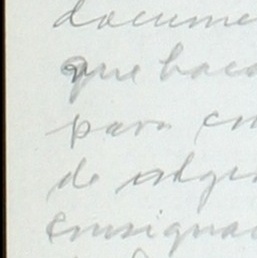 docume
que hac
para co
de
consigna